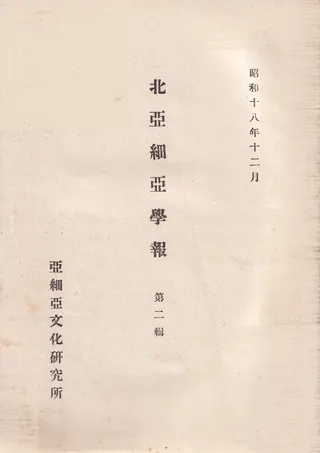 昭和十八年十二月
北亞細亞學報 第二輯
亞細亞文化硏究所